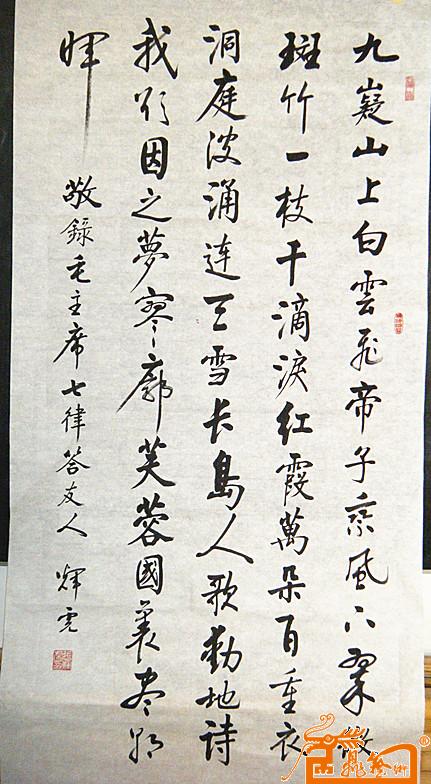 九嶷山上白雲飛帝子乘風下翠微
斑竹一枝千滴淚紅霞萬朵百重衣
洞庭波涌连天雪长島人歌動地詩
我欲因之夢寥廓芙蓉國裏盡朝
暉
敬錄毛主席七律答友人 輝